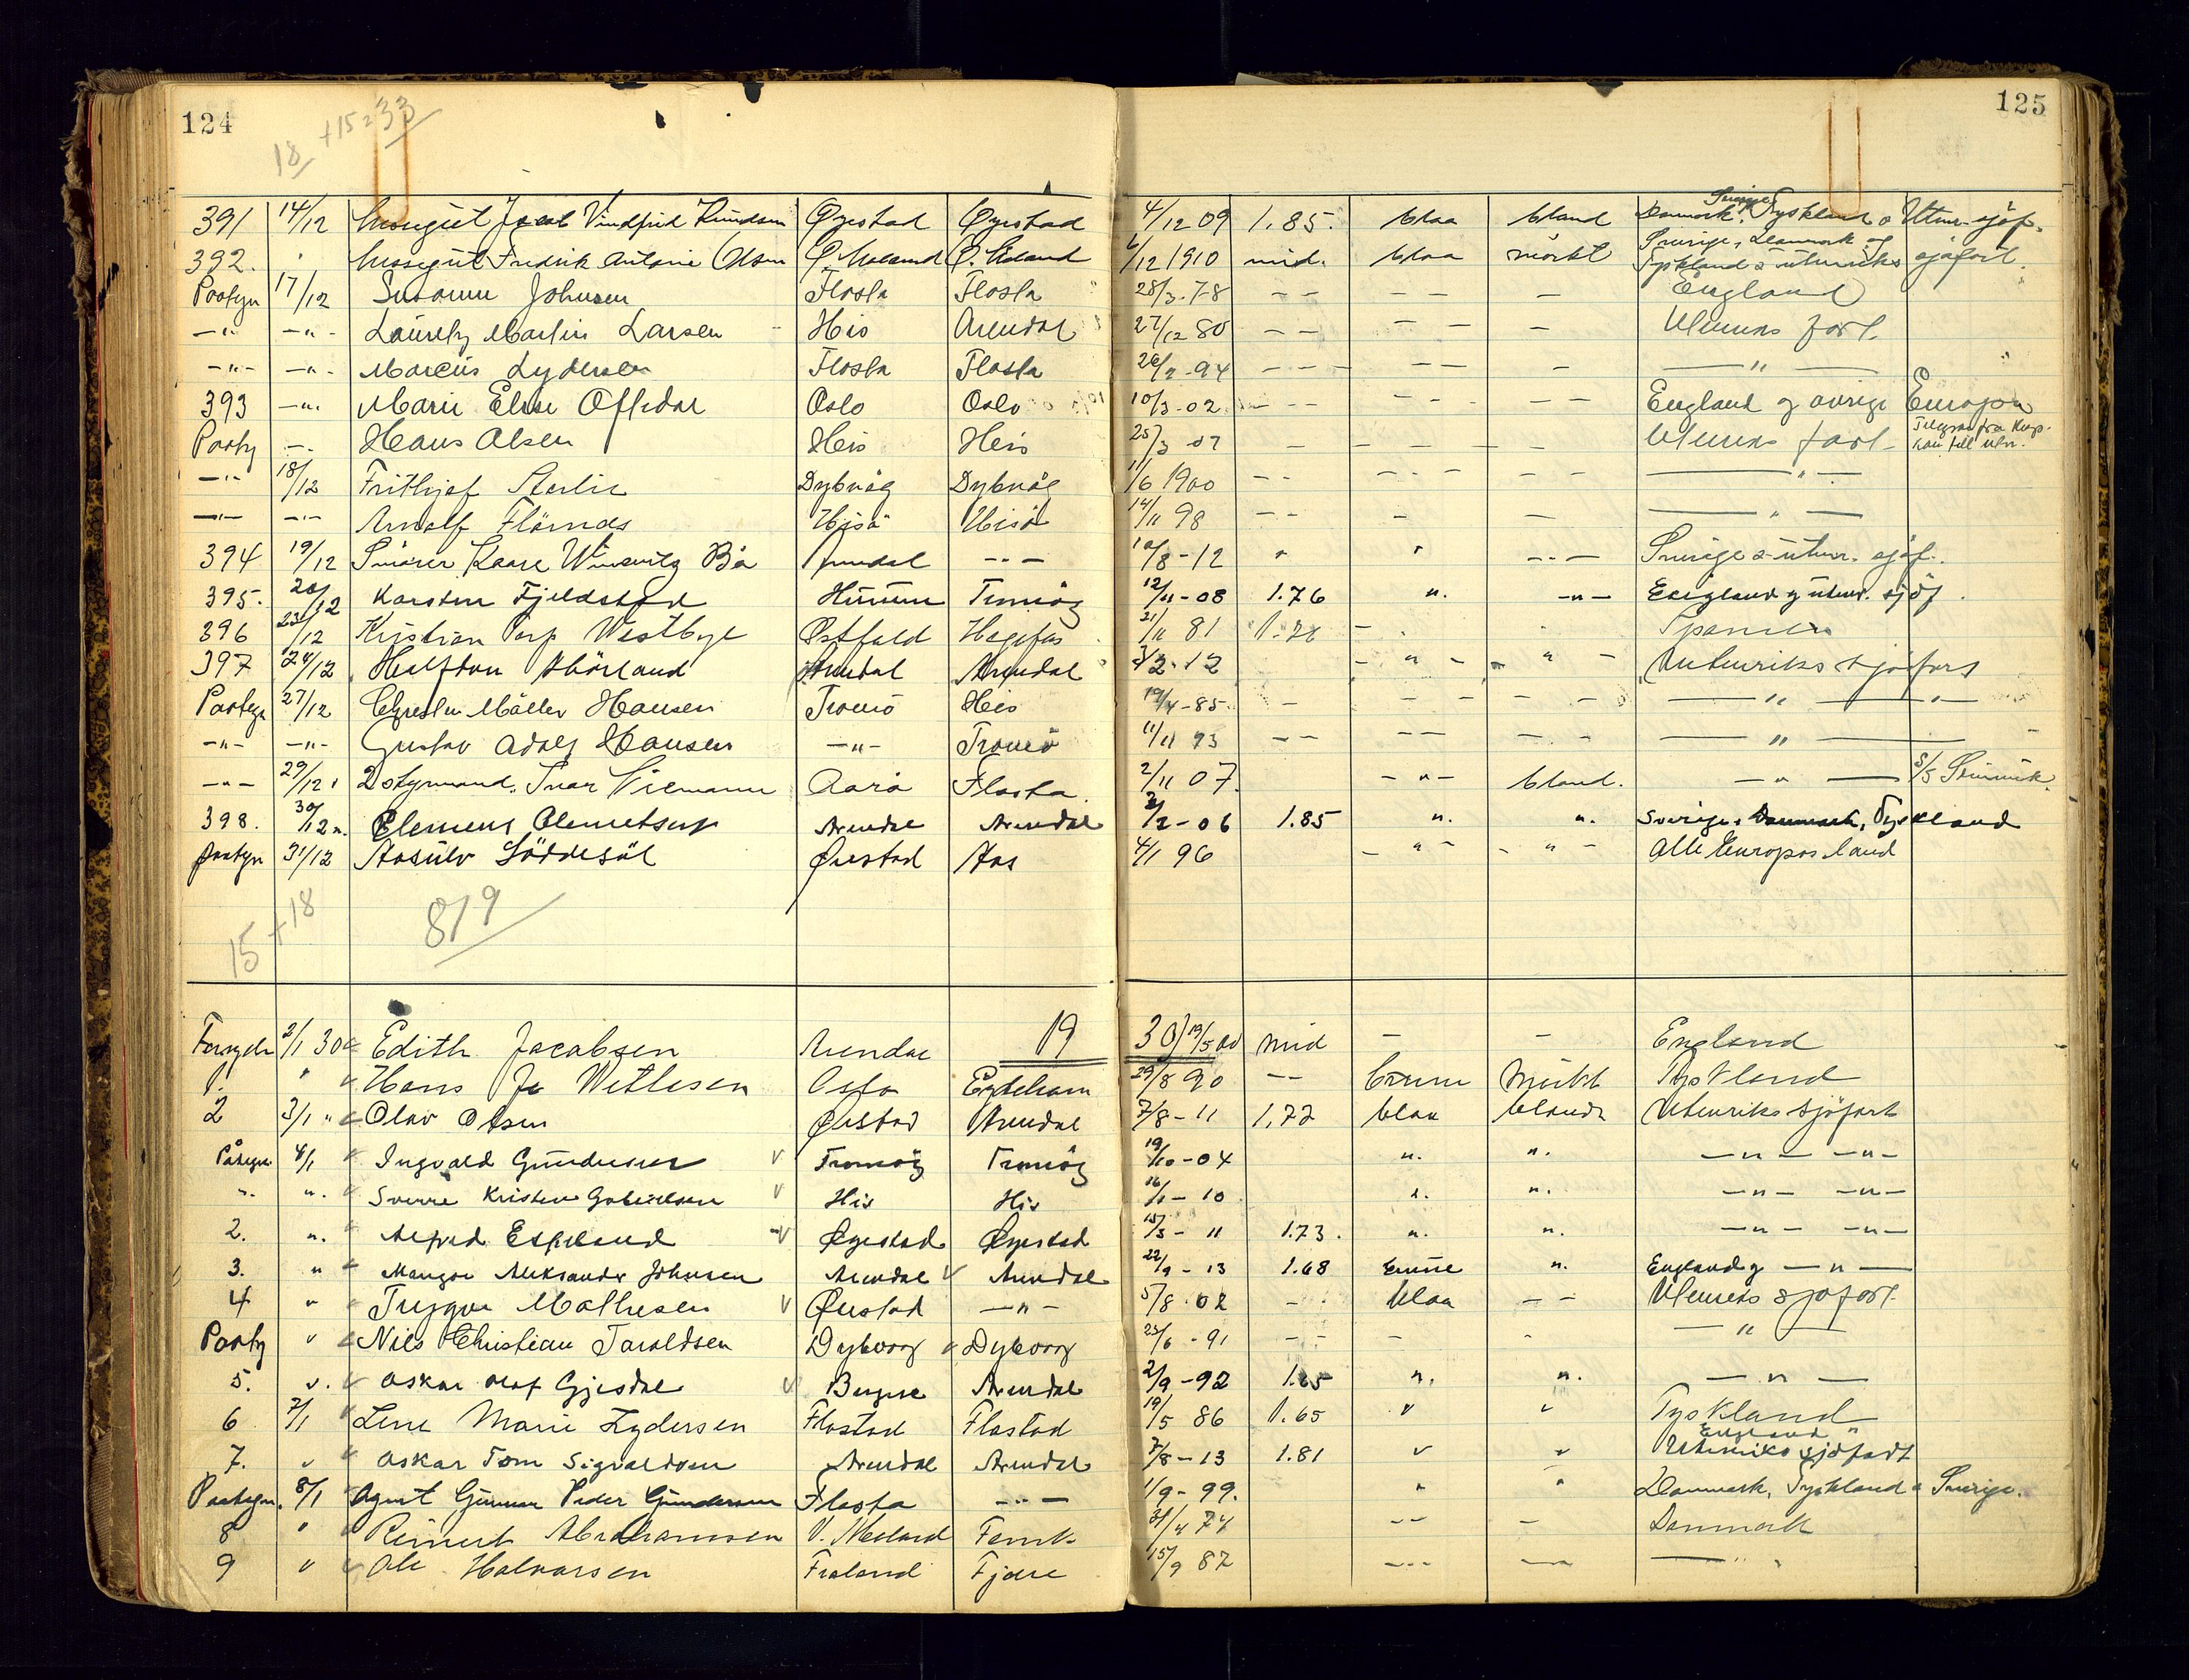 124
18 +15=33
125
391 14/12 Messegut Jacob Vindfrid Knudsen Øyestad Øyestad 4/12 09 1.85. blaa bland Sverige Danmark, Tyskland & Uten. sjöf.
392. " Messegut Fredrik Antonie Olsen Ö. Moland Ö. Moland 6/12 1910 mid. blaa mörkt Sverige, Danmark og Tyskland & utenriks sjöfart.
Paategn 17/12 Susanne Johnsen Flosta Flosta 28/3-78 — — — — — England
— " — — " — Lauritz Martin Larsen His Arendal 27/12 80 — — — — — Utenriks fart.
— " — — " — Marcus Lydersen Flosta Flosta 26/2-94 — — — — — — — " —
393 — " — Marie Elise Offedal Oslo Oslo 10/3-02 — — — — — — England og övrige Europa
Paateg — " — Hans Olsen His His 25/3 07 — — — — Utenriks fart — Telegram fra
— " — 18/12 Frithjof Dybvåg Dybvåg 11/6 1900 — — — — — — — " —
— " — — " — Arnolf Hisö Hisö 14/11 98 — — — — — " —
394 19/12 Smörer Kaare Bö Arendal — " — 10/8-12 " " — " — Sverige & utenr. sjöf.
395. 20/12 Karsten Fjeldstad Tromöy 12/11-08 1.76 ". — " — England og utenr. sjöf.
396 23/12 Kristian Torp Westbye Østfold 21/11 81 1.76 — " " Spanien
397 24/12 Halfdan Arendal Arendal 3/2-12 — " — — " — Utenriks sjöfart
Paategn 27/12 Christen Möller Hansen Tromö His 19/4-85 — — — — — — " — " —
— " — — " — Gustav Adolf Hansen — " — Tromö 11/11 93 — — — — — — — " —
— " — 29/12 2 styrmand. Ivar Flosta. 2/11 07. — " — bland. — " — S/S
398. 30/12 ". Clemens Clemetsen Arendal Arendal 2/2-06 1.85 ". ". Sverige, Danmark, Tyskland
Paategn 31/12 Aasulv Löddesöl Øiestad Aas 4/1 96 — " — — " — Alle Europas land
15+18 819
2/1 30 Edith Jacobsen Arendal 19 30 19/5 00 mid — — England
1. " Hans J. Oslo Eydehavn 29/8 90 — — brune mörkt Tyskland
2 3/1 " Olav Olsen Øiestad Arendal 7/8-11 1.72 blaa blondt Utenriks sjöfart
Påtegn 4/1 Ingvald Gundersen Tromöy Tromöy 19/10-04 ". ". — " — — " —
". ". Sverre Kristen Gabrielsen His His 16/1-10 ". ". — " — — " —
2. ". Alfred Eskeland Øyestad Øyestad 15/3-11 1.73. ". ". — " — — " —
3. " Aleksander Johnsen Arendal Arendal 22/9-13 1.68 brune ". England og — " —
4 " Trygve Mathisen Øiestad — " — 5/8-02 — " blaa — — Utenriks sjöfart.
Paateg " Nils Christian Taraldsen Dybvaag Dybvaag 25/6-91 — — — — — " —
5. ". Oskar Olaf Gjesdal Bergen Arendal 2/9-92 1.65 ". ". — " —
6 7/1 Lene Marie Lydersen Flostad Flostad 19/5 86 1.65 " " Tyskland
7. " Oskar Tom Sigvaldsen Arendal Arendal 7/8-13 1.81 " " England " Utenriks sjöfart
Paategn. 8/1 Agent Gunnar Peder Gundersen Flosta — " — 1/9-99. " " Danmark, Tyskland & Sverige.
8 " Reinert Abrahamsen V. Moland 4 74 — — — Danmark
9 " Ole Halvorsen Froland Fjære 15/9 87 — " — — " — — " —